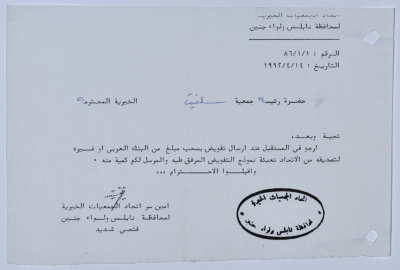 اتحاد الجمعيات الخيرية
لمحافظة نابلس ولواء جنين
الرقم : ٨٦/١/١
التاريخ : ١٩٦٢/٤/١٤
حضرة رئيسة جمعية سلفيت الخيرية المحترمة
تحية وبعد،
ارجو في المستقبل عند ارسال تفويض بسحب مبلغ من البنك العربي او غيره
لتصديقه من الاتحاد تعبئة نموذج التفويض المرفق طيه والمرسل لكم كمية منه ٠
واقبلوا الاحترام ٠٠٠
امين سر اتحاد الجمعيات الخيرية
لمحافظة نابلس ولواء جنين
فتحي شديد
اتحاد الجمعيات الخيرية
لمحافظة نابلس ولواء جنين